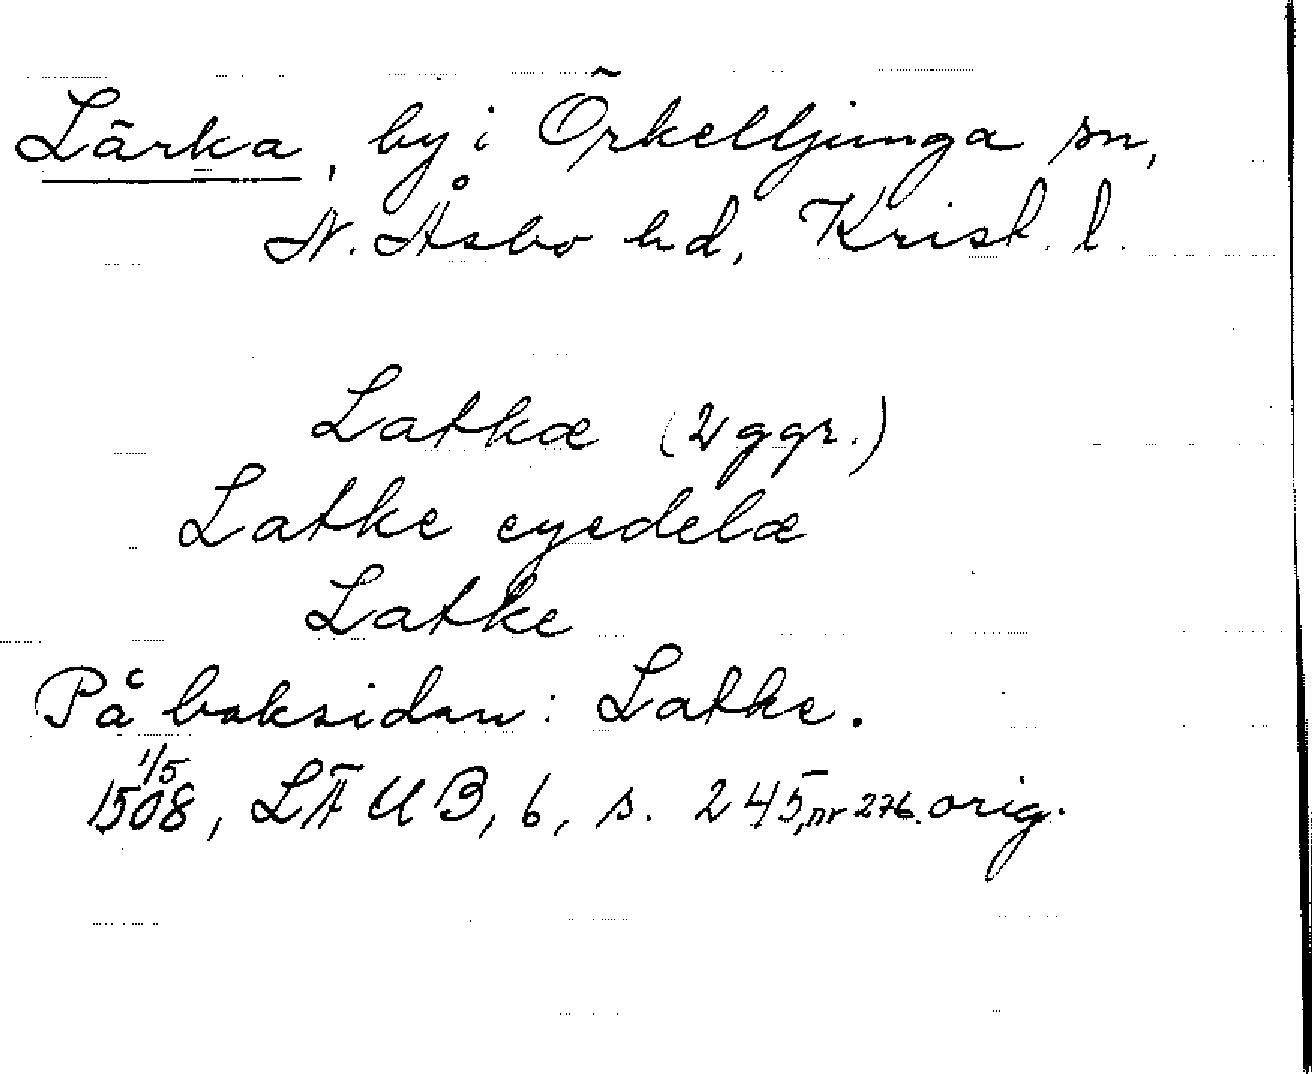 Lärka, by i Örkelljunga sn,
N. Åsbo hd, Krist. l.
Latkæ (2 ggr.)
Latke eyedelæ
Latke
På baksidan: Latke.
1/5
1508, LÄUB, 6, s. 245, nr 276. orig.